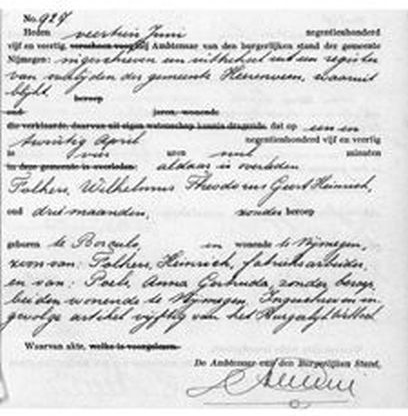 No. 927
Heden veertien Juni negentienhonderd
vijf en veertig, verscheen voor mij Ambtenaar van den burgerlijken stand der gemeente
Nijmegen: ingeschreven een uittreksel uit een register
van overlijden der gemeente Heerenveen, waaruit
blijkt. beroep
oud jaren, wonende
die verklaarde, daarvan uit eigen wetenschap kennis dragende, dat op een en
twintig April negentienhonderd vijf en veertig
te vier uren nul minuten
in deze gemeente is overleden: aldaar is overleden
Folkers, Wilhelmus Theodorus Geert Heinrich,
oud drie maanden, zonder beroep
geboren te Borculo, en wonende te Nijmegen,
zoon van: Folkers, Heinrich, fabrieksarbeider,
en van: Poels, Anna Gertruda, zonder beroep,
beiden wonende te Nijmegen. Ingeschreven in-
gevolge artikel vijftig van het Burgerlijk Wetboek
Waarvan akte, welke is voorgelezen.
De Ambtenaar van den Burgerlijken Stand,